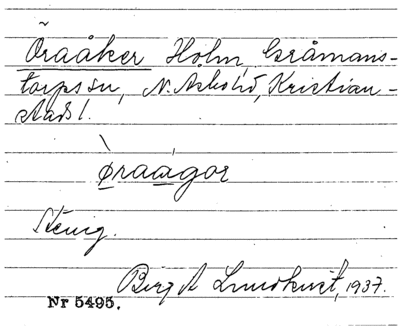 Öraåker Holm, Gråmans-
torps sn, N. Åsbo hd, Kristian-
stads l.
øraa̢gor
Stenig.
Birgit Lundkvist, 1937.
Nr 5495.